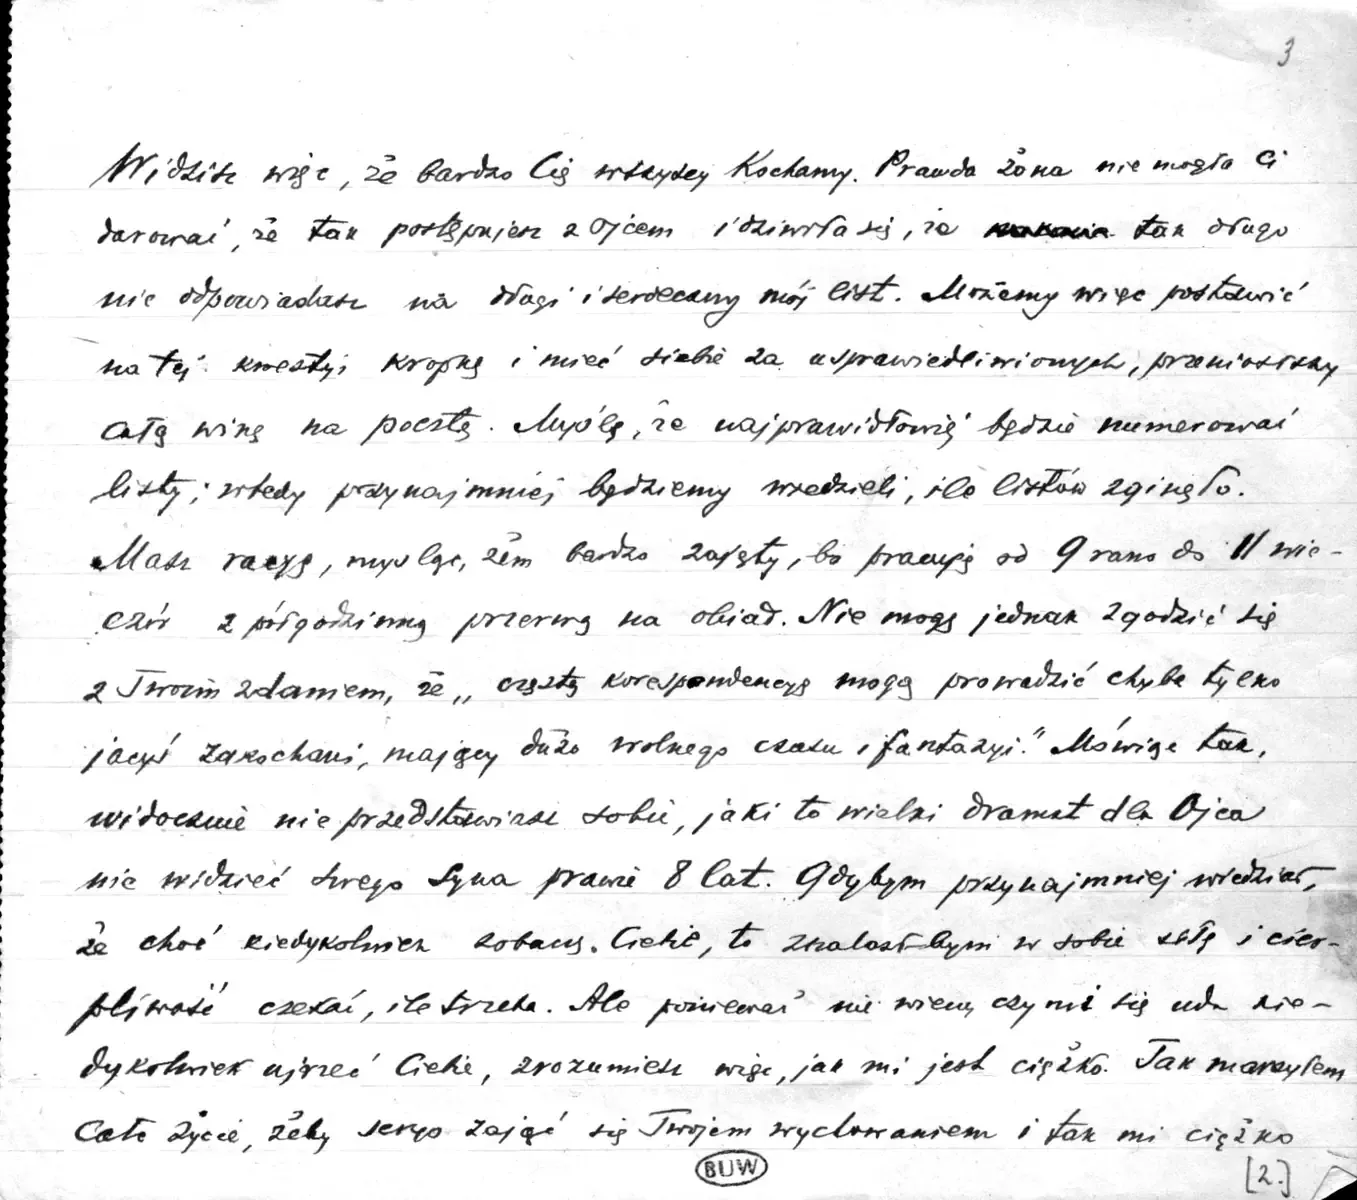 3
Widzisz więc, że bardzo Cię wszyscy Kochamy. Prawda żona nie mogła Ci
darować, że tak postępujesz z Ojcem i dziwiła się, że tak długo
nie odpowiadasz na długi i serdeczny mój list. Możemy więc postawić
na tej kwestyi kropkę i mieć siebie za usprawiedliwionych, przeniósłszy
całą winę na pocztę. Myślę, że najprawidłowiej będzie numerować
listy; wtedy przynajmniej będziemy wiedzieli, ile listów zginęło.
Masz rację, myśląc, żem bardzo zajęty, bo pracuję od 9 rano do 11 wie-
czór z półgodzinną przerwą na obiad. Nie mogę jednak zgodzić się
z Twoim zdaniem, że „częstą korespondencyę mogą prowadzić chyba tylko
jacyś zakochani, mający dużo wolnego czasu i fantazyi." Mówiąc tak,
widocznie nie przedstawiasz sobie, jaki to wielki dramat dla Ojca
nie widzieć swego Syna prawie 8 lat. Gdybym przynajmniej wiedział,
że choć kiedykolwiek zobaczę Ciebie, to znalazłbym w sobie siłę i cier-
pliwość czekać, ile trzeba. Ale ponieważ nie wiem, czy mi się uda kie-
dykolwiek ujrzeć Ciebie, zrozumiesz więc, jak mi jest ciężko. Tak marzyłem
całe życie, żeby serjo zająć się Twojem wychowaniem i tak mi ciężko
BUW
[2.]